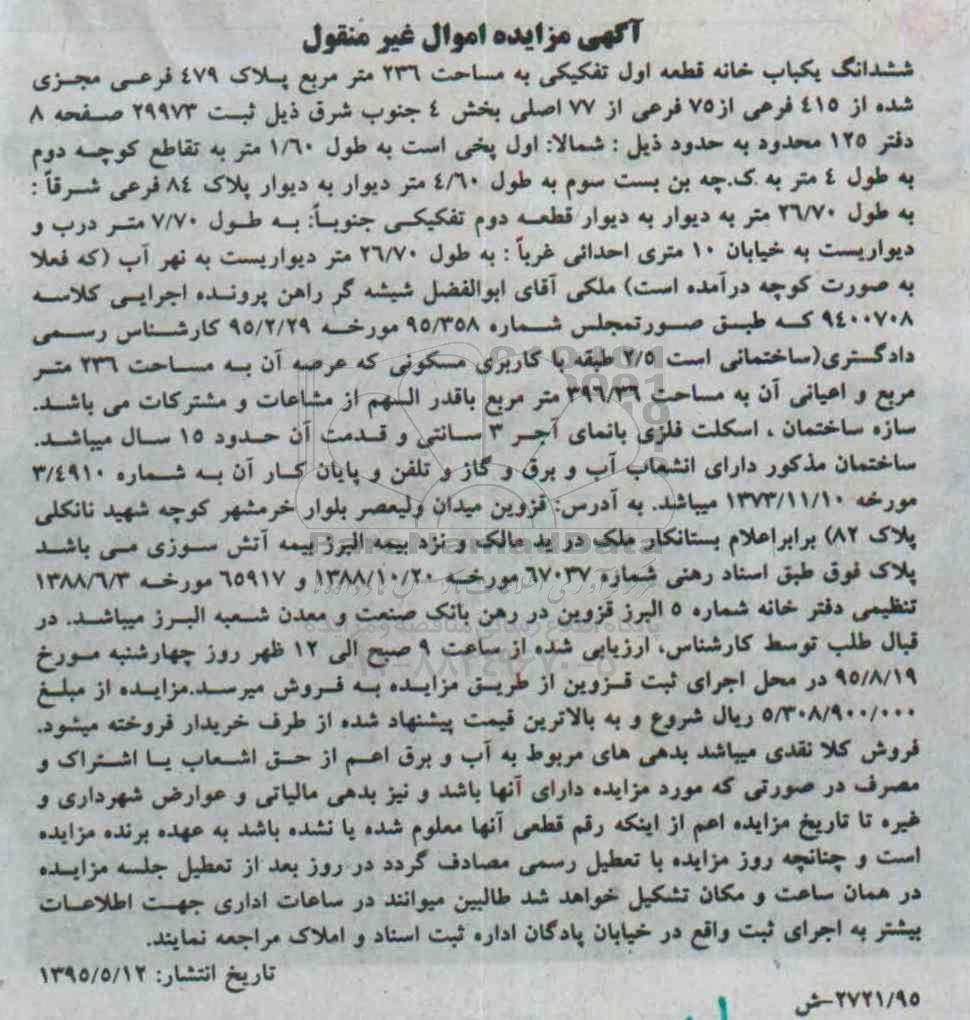 آگهی مزایده اموال غیر منقول
ششدانگ یکباب خانه قطعه اول تفکیکی به مساحت ۲۳٦ متر مربع پلاک ٤۷۹ فرعی مجزی
شده از ٤۱٥ فرعی از۷٥ فرعی از ۷۷ اصلی بخش ٤ جنوب شرق ذیل ثبت ۲۹۹۷۳ صفحه ۸
دفتر ۱۲٥ محدود به حدود ذیل : شمالا: اول پخی است به طول ۱/٦۰ متر به تقاطع کوچه دوم
به طول ٤ متر به ک.چه بن بست سوم به طول ٤/٦۰ متر دیوار به دیوار پلاک ۸٤ فرعی شرقاً :
به طول ۲٦/۷۰ متر به دیوار به دیوار قطعه دوم تفکیکی جنوباً: به طول ۷/۷۰ متر درب و
دیواریست به خیابان ۱۰ متری احداثی غرباً : به طول ۲٦/۷۰ متر دیواریست به نهر آب (که فعلا
به صورت کوچه درآمده است) ملکی آقای ابوالفضل شیشه گر راهن پرونده اجرایی کلاسه
۹٤۰۰۷۰۸ که طبق صورتمجلس شماره ۹٥/۳٥۸ مورخه ۹٥/۲/۲۹ کارشناس رسمی
دادگستری(ساختمانی است ۲/٥ طبقه با کاربری مسکونی که عرصه آن به مساحت ۲۳٦ متر
مربع و اعیانی آن به مساحت ۳۹٦/۳٦ متر مربع باقدر السهم از مشاعات و مشترکات می باشد.
سازه ساختمان ، اسکلت فلزی بانمای آجر ۳ سانتی و قدمت آن حدود ۱٥ سال میباشد.
ساختمان مذکور دارای انشعاب آب و برق و گاز و تلفن و پایان کار آن به شماره ۳/٤۹۱۰
مورخه ۱۳۷۳/۱۱/۱۰ میباشد. به آدرس: قزوین میدان ولیعصر بلوار خرمشهر کوچه شهید نانکلی
پلاک ۸۲) برابراعلام بستانکار ملک در ید مالک و نزد بیمه البرز بیمه آتش سوزی می باشد
پلاک فوق طبق اسناد رهنی شماره ٦۷۰۳۷ مورخه ۱۳۸۸/۱۰/۲۰ و ٦٥۹۱۷ مورخه ۱۳۸۸/٦/۳
تنظیمی دفتر خانه شماره ٥ البرز قزوین در رهن بانک صنعت و معدن شعبه البرز میباشد. در
قبال طلب توسط کارشناس، ارزیابی شده از ساعت ۹ صبح الی ۱۲ ظهر روز چهارشنبه مورخ
۹٥/۸/۱۹ در محل اجرای ثبت قزوین از طریق مزایده به فروش میرسد.مزایده از مبلغ
٥/۳۰۸/۹۰۰/۰۰۰ ریال شروع و به بالاترین قیمت پیشنهاد شده از طرف خریدار فروخته میشود.
فروش کلا نقدی میباشد بدهی های مربوط به آب و برق اعم از حق اشعاب یا اشتراک و
مصرف در صورتی که مورد مزایده دارای آنها باشد و نیز بدهی مالیاتی و عوارض شهرداری و
غیره تا تاریخ مزایده اعم از اینکه رقم قطعی آنها معلوم شده یا نشده باشد به عهده برنده مزایده
است و چنانچه روز مزایده با تعطیل رسمی مصادف گردد در روز بعد از تعطیل جلسه مزایده
در همان ساعت و مکان تشکیل خواهد شد طالبین میوانند در ساعات اداری جهت اطلاعات
بیشتر به اجرای ثبت واقع در خیابان پادگان اداره ثبت اسناد و املاک مراجعه نمایند.
تاریخ انتشار: ۱۳۹٥/٥/۱۲
۲۷۲۱/۹٥-ش